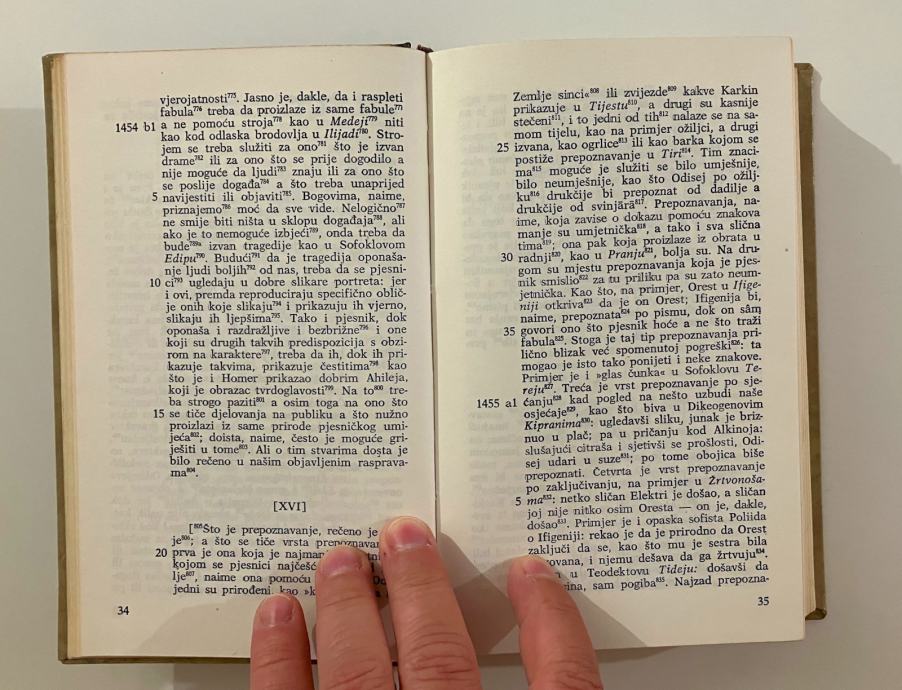 vjerojatnosti⁷⁷⁵. Jasno je, dakle, da i raspleti
fabula⁷⁷⁶ treba da proizlaze iz same fabule⁷⁷⁷
1454 b1 a ne pomoću stroja⁷⁷⁸ kao u Medeji⁷⁷⁹ niti
kao kod odlaska brodovlja u Ilijadi⁷⁸⁰. Stro-
jem se treba služiti za ono⁷⁸¹ što je izvan
drame⁷⁸² ili za ono što se prije dogodilo a
nije moguće da ljudi⁷⁸³ znaju ili za ono što
se poslije događa⁷⁸⁴ a što treba unaprijed
5 navijestiti ili objaviti⁷⁸⁵. Bogovima, naime,
priznajemo⁷⁸⁶ moć da sve vide. Nelogično⁷⁸⁷
ne smije biti ništa u sklopu događaja⁷⁸⁸, ali
ako je to nemoguće izbjeći⁷⁸⁹, onda treba da
bude⁷⁸⁹ᵃ izvan tragedije kao u Sofoklovom
Edipu⁷⁹⁰. Budući⁷⁹¹ da je tragedija oponaša-
nje ljudi boljih⁷⁹² od nas, treba da se pjesni-
10 ci⁷⁹³ ugledaju u dobre slikare portreta: jer
i ovi, premda reproduciraju specifično oblič-
je onih koje slikaju⁷⁹⁴ i prikazuju ih vjerno,
slikaju ih ljepšima⁷⁹⁵. Tako i pjesnik, dok
oponaša i razdražljive i bezbrižne⁷⁹⁶ i one
koji su drugih takvih predispozicija s obzi-
rom na karaktere⁷⁹⁷, treba da ih, dok ih pri-
kazuje takvima, prikazuje čestitima⁷⁹⁸ kao
što je i Homer prikazao dobrim Ahileja,
koji je obrazac tvrdoglavosti⁷⁹⁹. Na to⁸⁰⁰ tre-
ba strogo paziti⁸⁰¹ a osim toga na ono što
15 se tiče djelovanja na publiku a što nužno
proizlazi iz same prirode pjesničkog umi-
jeća⁸⁰²; doista, naime, često je moguće gri-
ješiti u tome⁸⁰³. Ali o tim stvarima dosta je
bilo rečeno u našim objavljenim rasprava-
ma⁸⁰⁴.
[XVI]
[⁸⁰⁵Što je prepoznavanje, rečeno je
je⁸⁰⁶; a što se tiče vrsta prepoznavan
20 prva je ona koja je najman
kojom se pjesnici najčešć
lje⁸⁰⁷, naime ona pomoću
jedni su prirođeni, kao
34
Zemlje sinci«⁸⁰⁸ ili zvijezde⁸⁰⁹ kakve Karkin
prikazuje u Tijestu⁸¹⁰, a drugi su kasnije
stečeni⁸¹¹, i to jedni od tih⁸¹² nalaze se na sa-
mom tijelu, kao na primjer ožiljci, a drugi
25 izvana, kao ogrlice⁸¹³ ili kao barka kojom se
postiže prepoznavanje u Tiri⁸¹⁴. Tim znaci-
ma⁸¹⁵ moguće je služiti se bilo umješnije,
bilo neumješnije, kao što Odisej po ožilj-
ku⁸¹⁶ drukčije bi prepoznat od dadilje a
drukčije od svinjara⁸¹⁷. Prepoznavanja, na-
ime, koja zavise o dokazu pomoću znakova
manje su umjetnička⁸¹⁸, a tako i sva slična
tima⁸¹⁹; ona pak koja proizlaze iz obrata u
30 radnji⁸²⁰, kao u Pranju⁸²¹, bolja su. Na dru-
gom su mjestu prepoznavanja koja je pjes-
nik smislio⁸²² za tu priliku pa su zato neum-
jetnička. Kao što, na primjer, Orest u Ifige-
niji otkriva⁸²³ da je on Orest; Ifigenija bi,
naime, prepoznata⁸²⁴ po pismu, dok on sâm
35 govori ono što pjesnik hoće a ne što traži
fabula⁸²⁵. Stoga je taj tip prepoznavanja pri-
lično blizak već spomenutoj pogreški⁸²⁶: ta
mogao je isto tako ponijeti i neke znakove.
Primjer je i »glas čunka« u Sofoklovu Te-
reju⁸²⁷. Treća je vrst prepoznavanje po sje-
1455 a1 ćanju⁸²⁸ kad pogled na nešto uzbudi naše
osjećaje⁸²⁹, kao što biva u Dikeogenovim
Kipranima⁸³⁰: ugledavši sliku, junak je briz-
nuo u plač; pa u pričanju kod Alkinoja:
slušajući citraša i sjetivši se prošlosti, Odi-
sej udari u suze⁸³¹; po tome obojica biše
prepoznati. Četvrta je vrst prepoznavanje
po zaključivanju, na primjer u Žrtvonoša-
5 ma⁸³²: netko sličan Elektri je došao, a sličan
joj nije nitko osim Oresta — on je, dakle,
došao⁸³³. Primjer je i opaska sofista Poliida
o Ifigeniji: rekao je da je prirodno da Orest
zaključi da se, kao što mu je sestra bila
ovana, i njemu dešava da ga žrtvuju⁸³⁴.
u Teodektovu Tideju: došavši da
ina, sam pogiba⁸³⁵. Najzad prepozna-
35